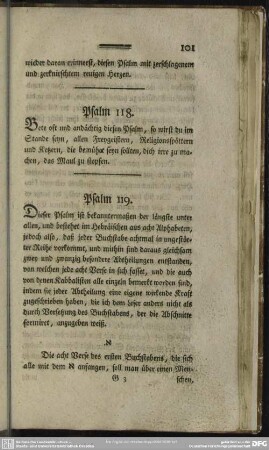 101
wieder daran erinnerst, diesen Psalm mit zerschlagenem
und zerknirschtem reuigen Herzen.
Psalm 118.
Bete oft und andächtig diesen Psalm, so wirst du im
Stande seyn, allen Freygeistern, Religionsspöttern
und Ketzern, die bemühet seyn sollten, dich irre zu ma-
chen, das Maul zu stopfen.
Psalm 119.
Dieser Psalm ist bekanntermaßen der längste unter
allen, und bestehet im Hebräischen aus acht Alphabeten,
jedoch also, daß jeder Buchstabe achtmal in ungestör-
ter Reihe vorkommt, und mithin sind daraus gleichsam
zwey und zwanzig besondere Abtheilungen entstanden,
von welchen jede acht Verse in sich fasset, und die auch
von denen Kabbalisten alle einzeln bemerkt worden sind,
indem sie jeder Abtheilung eine eigene wirkende Kraft
zugeschrieben haben, die ich dem Leser anders nicht als
durch Versetzung des Buchstabens, der die Abschnitte
formiret, angugeben weiß.
א
Die acht Verse des ersten Buchstabens, die sich
alle mit dem א anfangen, soll man über einen Men-
G 3 schen,